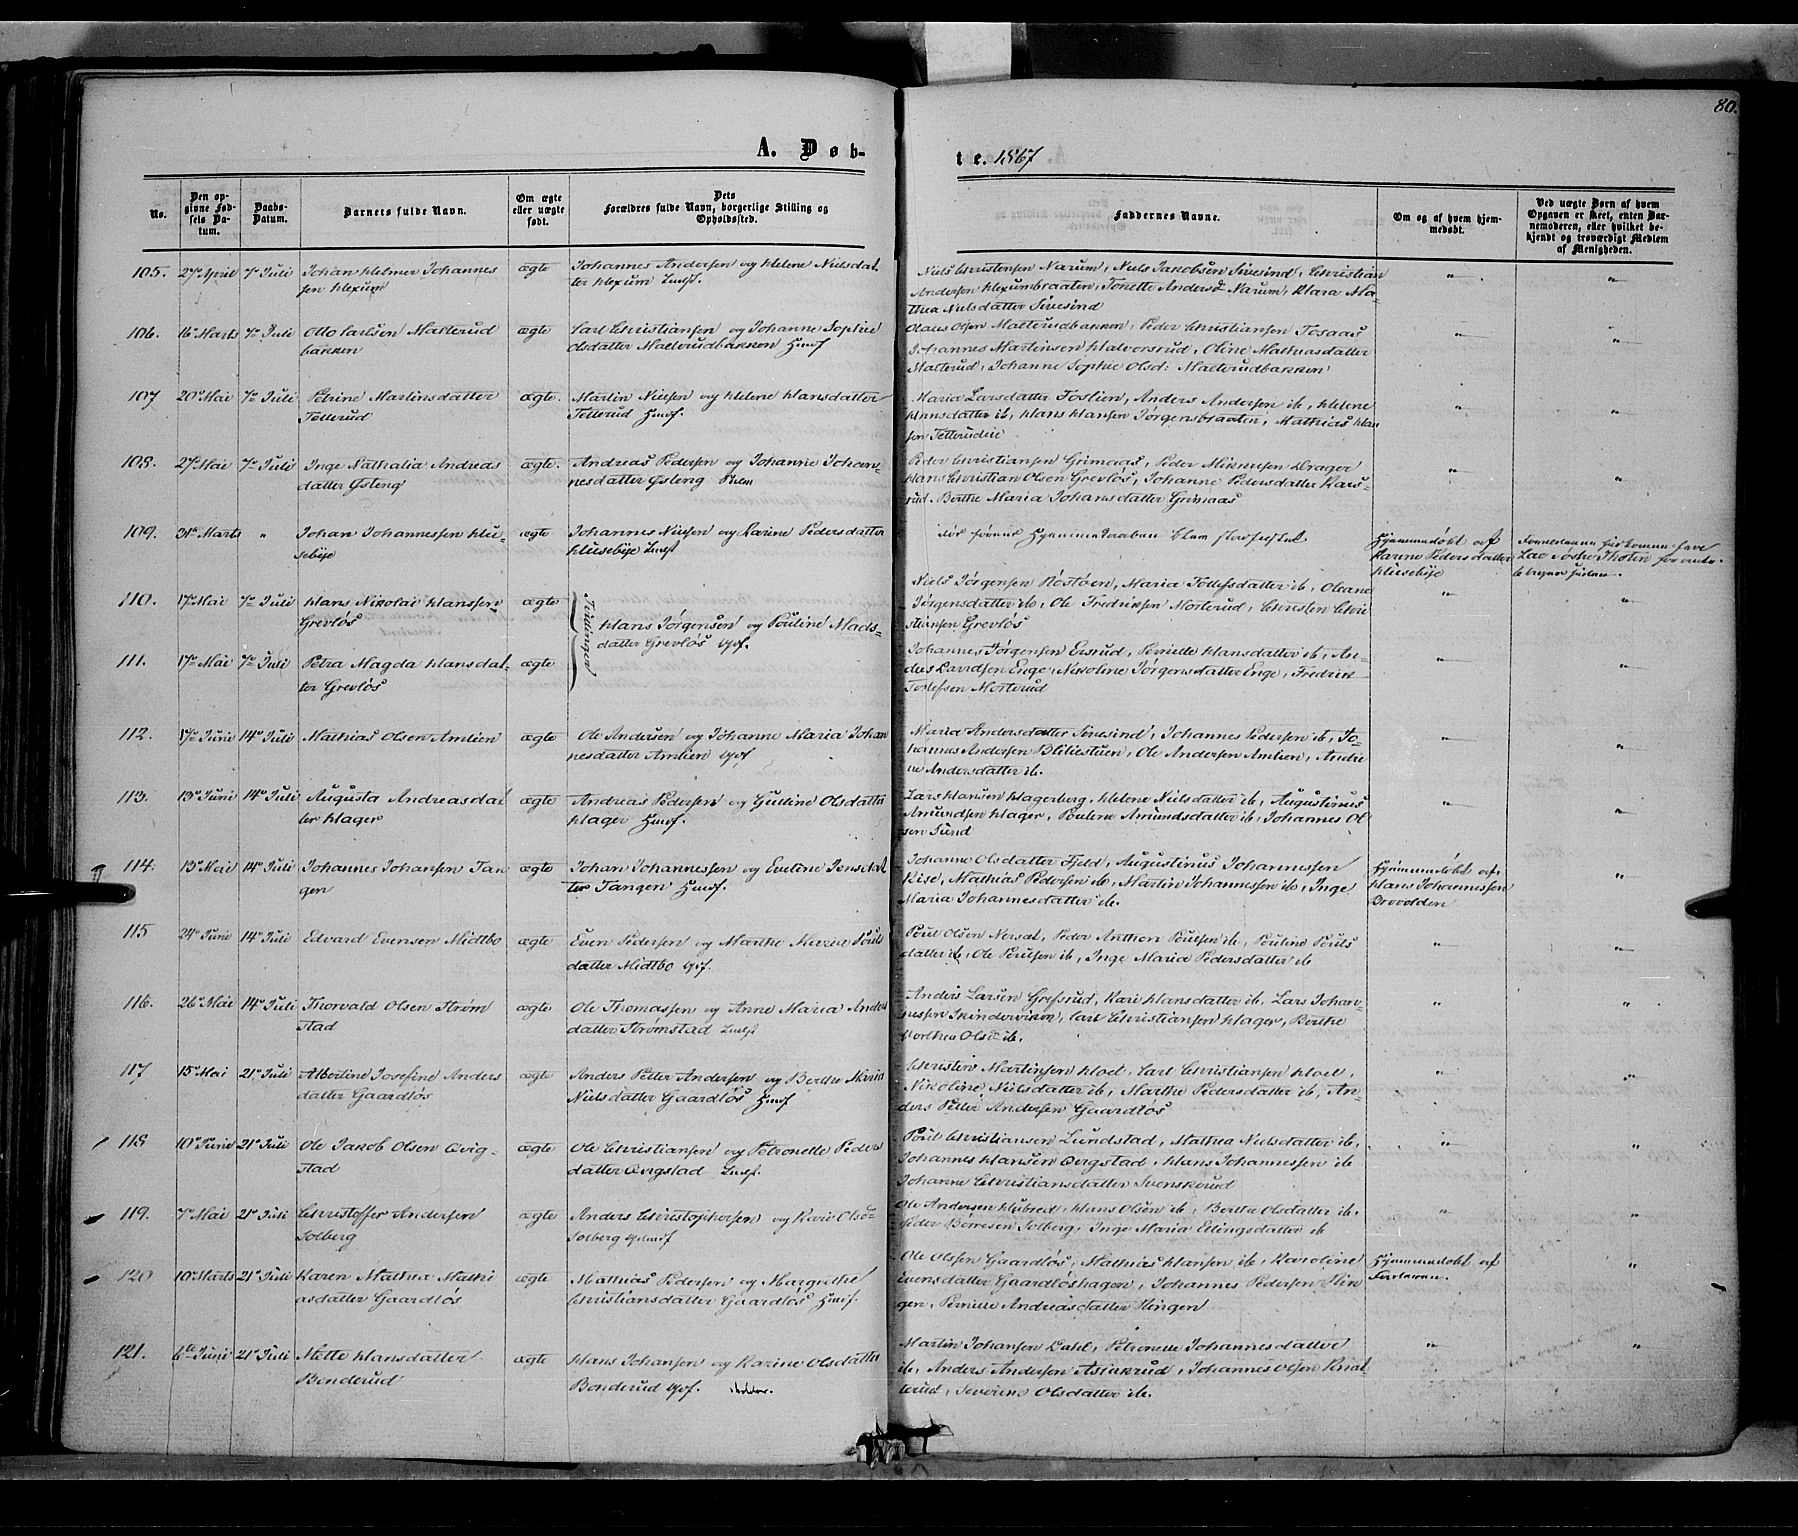 80.
A. Døb-
te. 1867
No.
Den op-
givne Fød-
sels Da-
tum.
Daabs-
Datum.
Barnets fulde Navn.
Om ægte
eller uægte
født.
Dets
Forældres fulde Navn, borgerlige Stilling og
Opholdssted.
Faddernes Navne.
Om og af hvem hjem-
medøbt.
Ved uægte Børn af hvem
Opgaven er skeet, enten Bar-
nemoderen, eller hvilket be-
kjendt og troværdigt Medlem
af Menigheden.
105. 27de April 7de Juli Johan Helmer Johannes
sen Hexum
ægte
Johannes Andersen og Helene Nielsdat
ter Hexum Indst.
Niels Christensen Narum, Niels Jakobsen Sivesind, Christian
Andersen Hexumbraaten, Tonette Andersd Narum, Klara Ma-
thea Nielsdatter Sivesind
106. 16de Marts 7de Juli Otto Carlsen Malterud
bakken
ægte
Carl Christiansen og Johanne Sophie
Olsdatter Malterudbakken Husf
Olaus Olsen Malterudbakken, Peder Christiansen Tosaas
Johannes Martinsen Halvorsrud, Oline Mathiasdatter
Malterud, Johanne Sophie Olsd: Malterudbakken
107 20de Mai 7de Juli Petrine Martinsdatter
Tellerud
ægte
Martin Nielsen og Helene Hansdatter
Tellerud Husf.
Maria Larsdatter Foslien, Anders Andersen ib, Helene
Hansdatter ib, Hans Hansen Jørgensbraaten, Mathias Han
sen Tellerudeie
108. 27de Mai 7de Juli Inge Nathalia Andreas
datter Østeng
ægte.
Andreas Pedersen og Johanne Johan-
nesdatter Østeng
Peder Christiansen Grimaas, Peder Mikkelsen Drager
Hans Christian Olsen Grevløs, Johanne Pedersdatter Kars-
rud. Berthe Maria Johansdatter Grimaas
109. 31te Marts " Johan Johannessen Hu-
sebye
ægte
Johannes Nielsen og Karine Pedersdatter
Husebye Indst
Hjemmedøbt af
Karine Pedersdatter
Husebye
110. 17de Mai 7de Juli Hans Nikolai Hanssen
Grevløs
ægte
Tvillinger
Hans Jørgensen og Pouline Mads-
datter Grevløs Gaf.
Niels Jørgensen Røstøen, Maria Tollefsdatter ib, Oleane
Jørgensdatter ib, Ole Fredriksen Morterud, Christen Chri
stiansen Grevløs
111. 17de Mai 7de Juli Petra Magda Hansdat-
ter Grevløs
ægte
Johannes Jørgensen Eisrud, Pernille Hansdatter ib, An-
dreas Davidsen Enge, Nikoline Jørgensdatter Enge, Fredrik
Tollefsen Morterud
112. 17de Juni 14de Juli Mathias Olsen Amlien
ægte
Ole Andersen og Johanne Maria Johan
nesdatter Amlien Gaf
Maria Andersdatter Sivesind, Johannes Pedersen ib, Jo-
hannes Andersen Blikiestuen, Ole Andersen Amlien, Andre
ne Andersdatter ib.
113. 13de Juni 14de Juli Augusta Andreasdat
ter Hager
ægte
Andreas Pedersen og Gulline Olsdatter
Hager Husf.
Lars Hansen Hagerberg, Helene Nielsdatter ib, Augustinus
Amundsen Hager, Pouline Amundsdatter ib, Johannes Ol
sen Sund
114. 13de Mai 14de Juli Johannes Johansen Tan
gen
ægte
Johan Johannessen og Eveline Jensdat
ter Tangen Husf.
Johanne Olsdatter Fjeld, Augustinus Johannessen
Kise, Mathias Pedersen ib, Martin Johannessen ib, Inge
Maria Johannesdatter ib.
Hjemmedøbt af
Hans Johannessen
Brovolden
115 24de Juni 14de Juli Edvard Evensen Midtbo
ægte
Even Pedersen og Marthe Maria Pouls
datter Midtbo Gaf.
Poul Olsen Nersæt, Peder Anthon Poulsen ib, Pouline Pouls
datter ib, Ole Poulsen ib, Inge Maria Pedersdatter ib
116. 26de Mai 14de Juli Thorvald Olsen Strøm
stad
ægte
Ole Thomassen og Anne Maria Anders
datter Strømstad Indst
Anders Larsen Grefsrud, Kari Hansdatter ib, Lars Johan-
nessen Skinderviken, Carl Christiansen Hager, Berthe
Dorthea Olsd ib.
117 15de Mai 21de Juli Albertine Josefine Anders
datter Gaardløs
ægte
Anders Petter Andersen og Berthe Maria
Nielsdatter Gaardløs Husf
Christen Martinsen Hoel, Carl Christiansen Hoel,
Nikoline Nielsdatter ib, Marthe Pedersdatter ib, An-
ders Petter Andersen Gaardløs
118 10de Juni 21de Juli Ole Jakob Olsen Qvig-
stad
ægte
Ole Christiansen og Petronelle Peders
datter Qvigstad Indst.
Poul Christiansen Lundstad, Mathea Nielsdatter ib,
Johannes Hansen Qvigstad, Hans Johannessen ib
Johanne Christiansdatter Svenskerud
119. 7de Mai 21de Juli Christoffer Andersen
Solberg
ægte
Anders Christophersen og Kari Olsd
Solberg
Ole Andersen Hubred, Hans Olsen ib, Berthe Olsdatter ib,
Peder Børresen Solberg, Inge Maria Ellingsdatter ib
120 10de Marts 21de Juli Karen Mathea Mathi
asdatter Gaardløs
ægte
Mathias Pedersen og Margrethe
Christiansdatter Gaardløs Husf.
Ole Olsen Gaardløs, Mathias Hansen ib, Karoline
Evensdatter Gaardløshagen, Johannes Pedersen Slin
gen, Pernille Andreasdatter Slingen
Hjemmedøbt af
121. 6te Juni 21de Juli Mette Hansdatter
Bonderud
ægte
Hans Johansen og Karine Olsdatter
Bonderud Gaf.
Martin Johansen Dahl, Petronelle Johannesdatter
ib, Anders Andersen Askerud, Johannes Olsen Knat
terud, Severine Olsdatter ib.